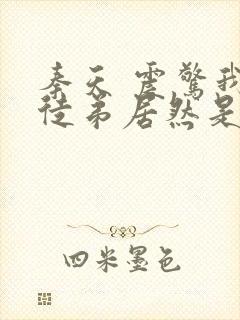 秦天 震驚我
徒弟居然是
四米墨色